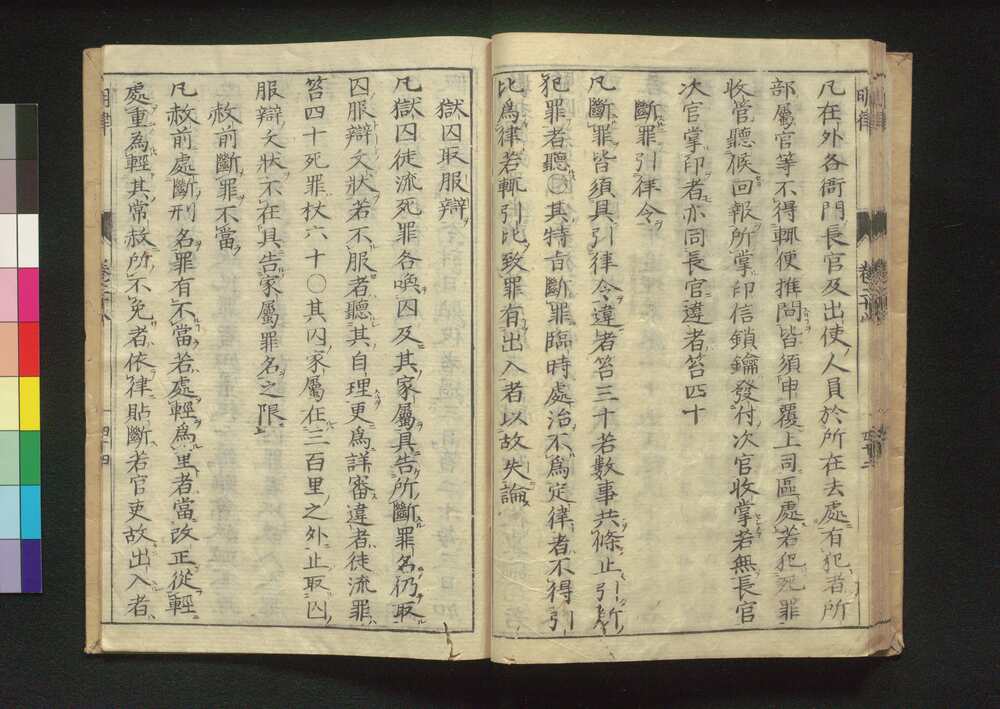 凡在外各衙門長官及出使人員於所在去處有犯者所
部屬官等不得輙便推問皆須申覆上司區處若犯死罪
收管聽候回報所掌印信鎖鑰發付次官收掌若無長官
次官掌印者亦同長官違者笞四十
斷罪引律令
凡斷罪皆須具引律令違者笞三十若數事共條止引所
犯罪者聽〇其特旨斷罪臨時處治不爲定律者不得引
比爲律若輙引比致罪有出入者以故失論
獄囚取服辯
凡獄囚徒流死罪各喚囚及其家屬具告所斷罪名仍取
囚服辯文狀若不服者聽其自理更爲詳審違者徒流罪
笞四十死罪杖六十〇其囚家屬在三百里之外止取囚
服辯文狀不在具告家屬罪名之限
赦前斷罪不當
凡赦前處斷刑名罪有不當若處輕爲重者當改正從輕
處重為輕其常赦所不免者依律貼斷若官吏故出入者
明律
卷二十八
四十四